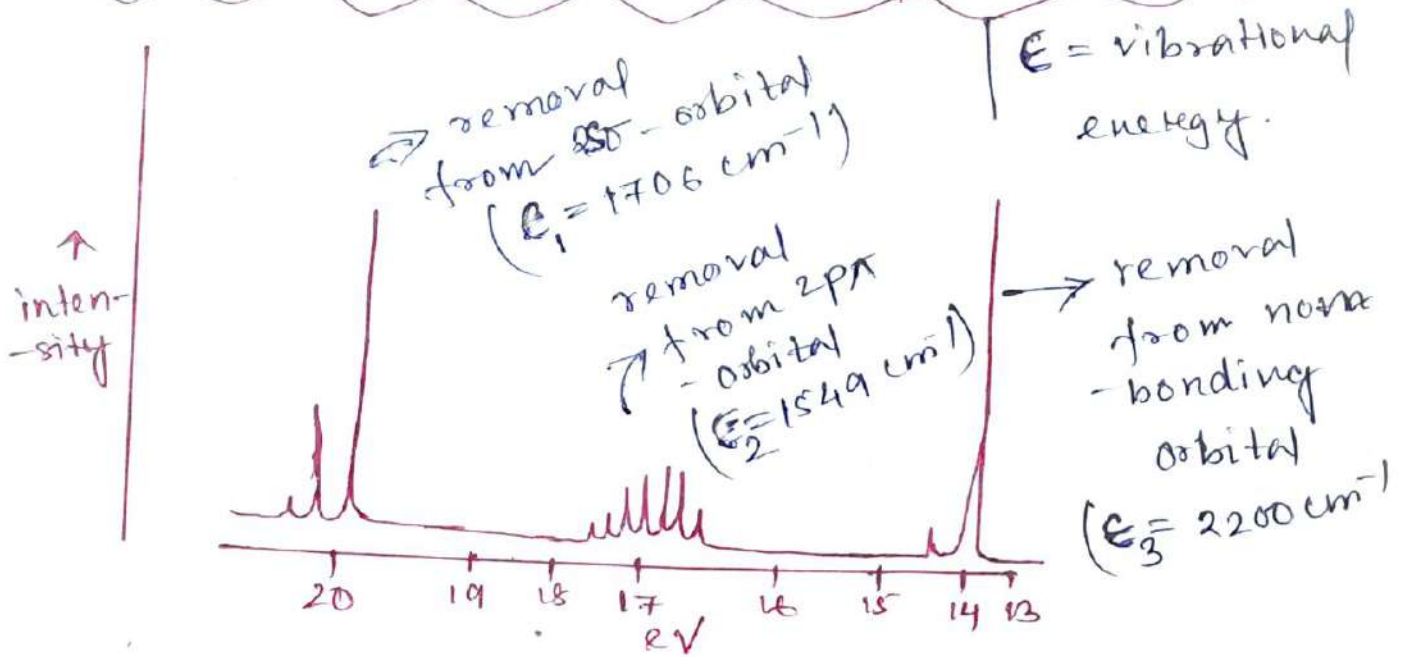 Є = vibrational
energy.
removal
from σ - orbital
(Є₁ = 1706 cm⁻¹)
removal
from 2pπ
- orbital
(Є₂ = 1549 cm⁻¹)
→ removal
from non
- bonding
orbital
(Є₃ = 2200 cm⁻¹
↑
inten-
-sity
20 19 18 17 16 15 14 13
eV